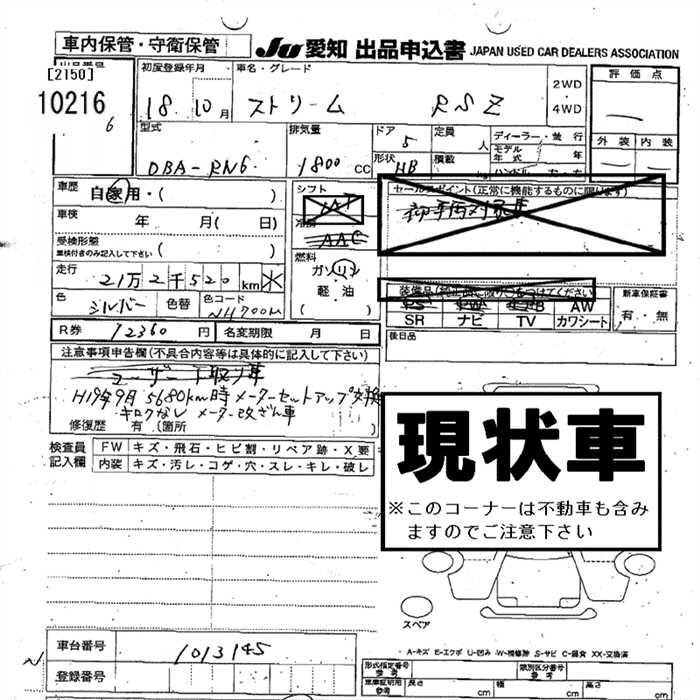 車内保管・守衛保管
JU 愛知 出品申込書 JAPAN USED CAR DEALERS ASSOCIATION
出品番号
[2150]
10216
6
初度登録年月
18 10月
車名・グレード
ストリーム RSZ
2WD
・
4WD
評価点
外装 内装
型式
DBA-RN6
排気量
1800 cc
ドア
5
形状 HB
定員 人
積載 kg
ディーラー・並行
モデル年式 年
車歴 自家用・( )
車検 年 月( 日)
受検形態
車検付きのみ記入して下さい ( )
走行
21万2千520 km
色
シルバー
色替
色コード
NH700M
シフト
AT
冷房
AAC
燃料
ガソリン
軽・油
( )
セールスポイント(正常に機能するものに限ります)
AW
SR ナビ TV カワシート
新車保証書
有・無
後日品
R券 12360 円 名変期限 月 日
注意事項申告欄(不具合内容等は具体的に記入して下さい)
ユーザー下取り車
H19年9月 5680km時 メーターセットアップ交換
キロクなし メーター改ざん車
修復歴 有(箇所 )
検査員
記入欄
FW キズ・飛石・ヒビ割・リペア跡・X要
内装 キズ・汚レ・コゲ・穴・スレ・キレ・破レ
現状車
※このコーナーは不動車も含み
ますのでご注意下さい
スペア
A-キズ E-エクボ U-凹み W-補修跡 S-サビ C-腐食 XX-交換済
車台番号 1013145
登録番号
形式指定番号
参考
類別区分番号
参考
車庫証明用
参考
長さ cm
幅 cm
高さ cm